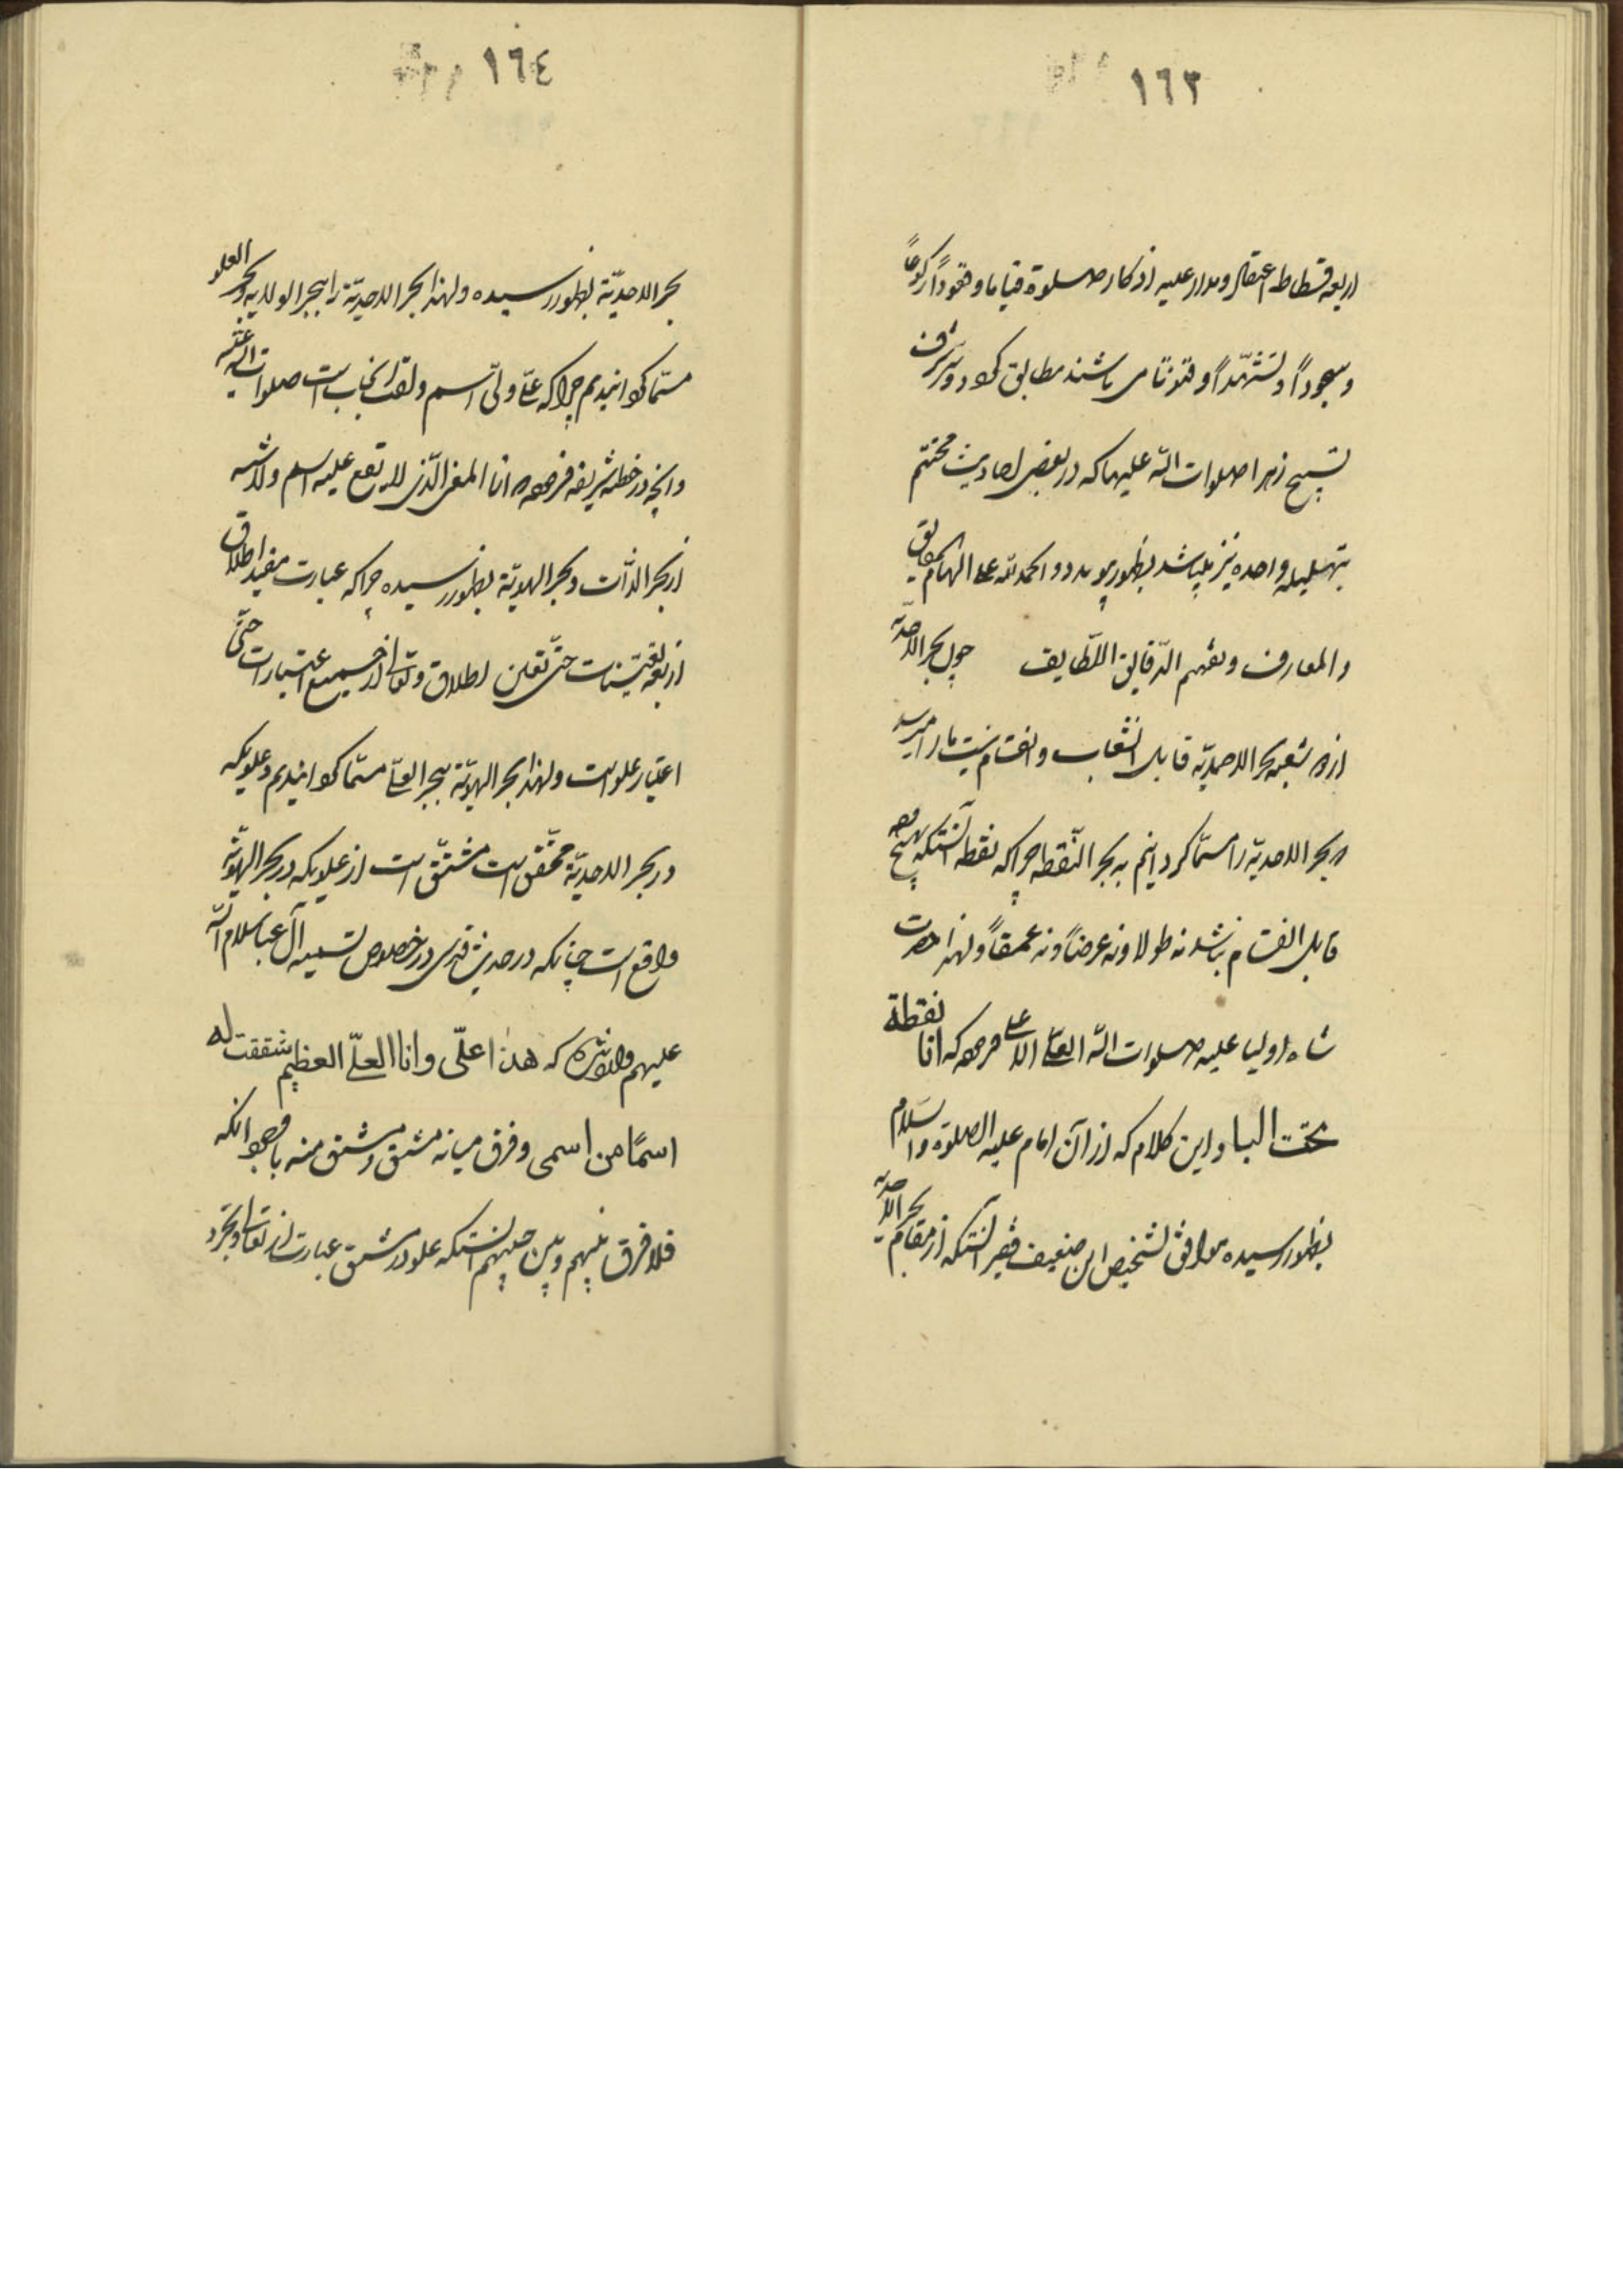 ١٦٣
اربعه قسطاط اعتقال ومدار علیه اذکار صلوة قیاما وقعوداً رکوعاً
وسجوداً وتشهّداً وقنوتا می باشند مطابق
تسبیح زهرا صلوات الله علیهما که در بعضی احادیث مختتم
بتهلیله واحده نیز میباشد بظهور والحمد لله علی الهام
والمعارف وتفهم الدّقایق اللّطایف چون بحر الاحدیّه
شعبه بحر الاحدیّه قابل انشعاب وانقسام نیست
بحر الاحدیّه را مسمّا کردانیم به بحر النّقطه چرا که نقطه آنستکه بهیچ وجه
قابل انقسام نباشد نه طولا ونه عرضاً ونه عمقاً ولهذا حضرت
شاه اولیا علیه صلوات الله العلی الاعلی فرموده که انا نقطة
تحت البا واین کلام که از آن امام علیه الصلوة والسلام
بظهور رسیده موافق تشخیص این ضعیف فقیر آنستکه از مقام بحر الاحدیّه
١٦٤
بحر الاحدیّة بظهور رسیده ولهذا بحر الاحدیّة را ببحر الولایه وبحر العلو
مسمّا کردانیدیم چرا که علی ولیّ اسم ولقب آنجناب است صلوات الله علیه
وانچه در خطبه شریفه فرموده انا المعنی الّذی لا یقع علیه اسم ولا شبه
از بحر الذّات وبحر الهویّة بظهور رسیده چرا که عبارت مفید اطلاق
از بقیّه تعیّنات حتی تعین اطلاق وتعالی از جمیع اعتبارات حتّی
اعتبار علو است ولهذا بحر الهویّة ببحر العلی مسمّا کردانیدیم وعلویکه
در بحر الاحدیّة محقّق است مشتقّ است از علویکه در بحر الهویّة
واقع است چنانکه در حدیث قدسی در خصوص تسمیه آل عبا سلام الله
علیهم وارد شده که هذا علّی وانا العلّی العظیم شققت له
اسمًا من اسمی وفرق میانه مشتق ومشتق منه با وجود انکه
فلا فرق بینهم وبین حبیبهم آنستکه علو در مشتق عبارت از تعالی وتجرد